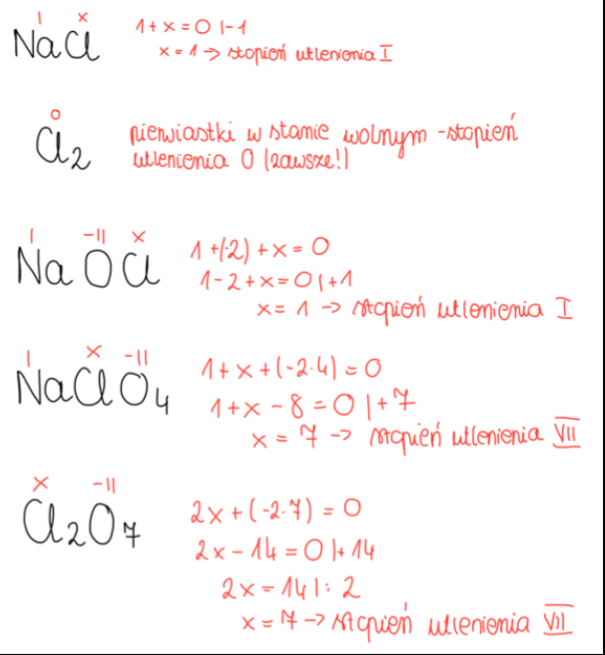 I x
NaCl 1+x=0 |-1
x=1 → stopień utlenienia I
0
Cl₂ pierwiastki w stanie wolnym - stopień
utlenienia 0 (zawsze!)
I -II x
NaOCl 1+(-2)+x=0
1-2+x=0 |+1
x=1 → stopień utlenienia I
I x -II
NaClO₄ 1+x+(-2·4)=0
1+x-8=0 |+7
x=7 → stopień utlenienia VII
x -II
Cl₂O₇ 2x+(-2·7)=0
2x-14=0 |+14
2x=14 |:2
x=7 → stopień utlenienia VII